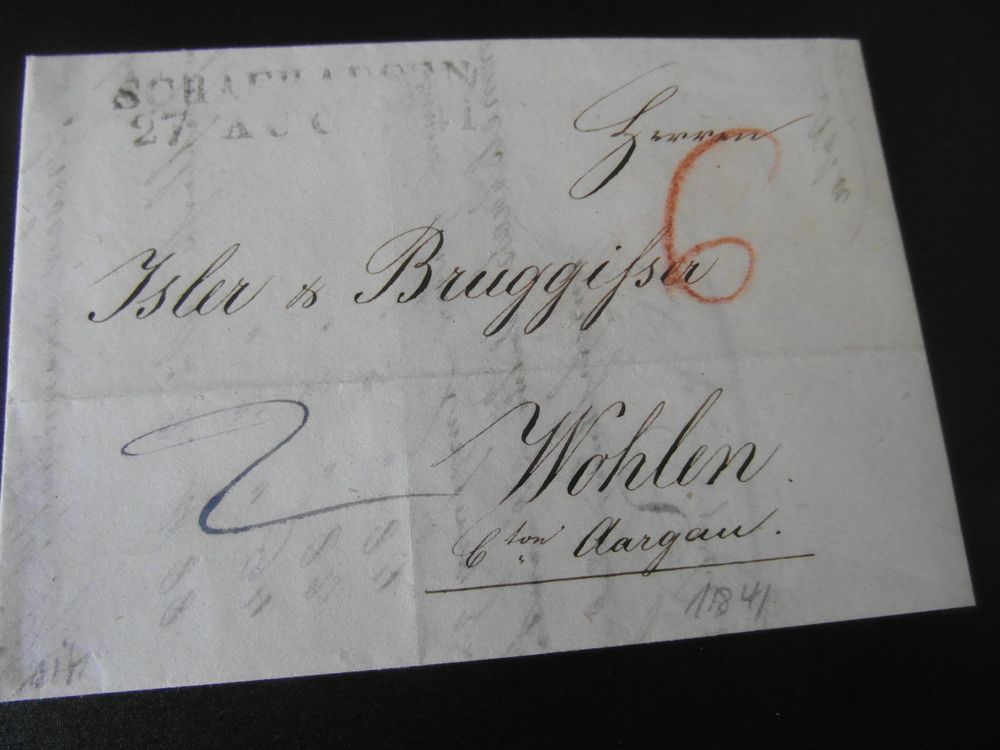 SCHAFHAUSEN
27 AUG 41
Herren
6
Isler & Bruggisser
2
Wohlen.
Cton Aargau.
1841